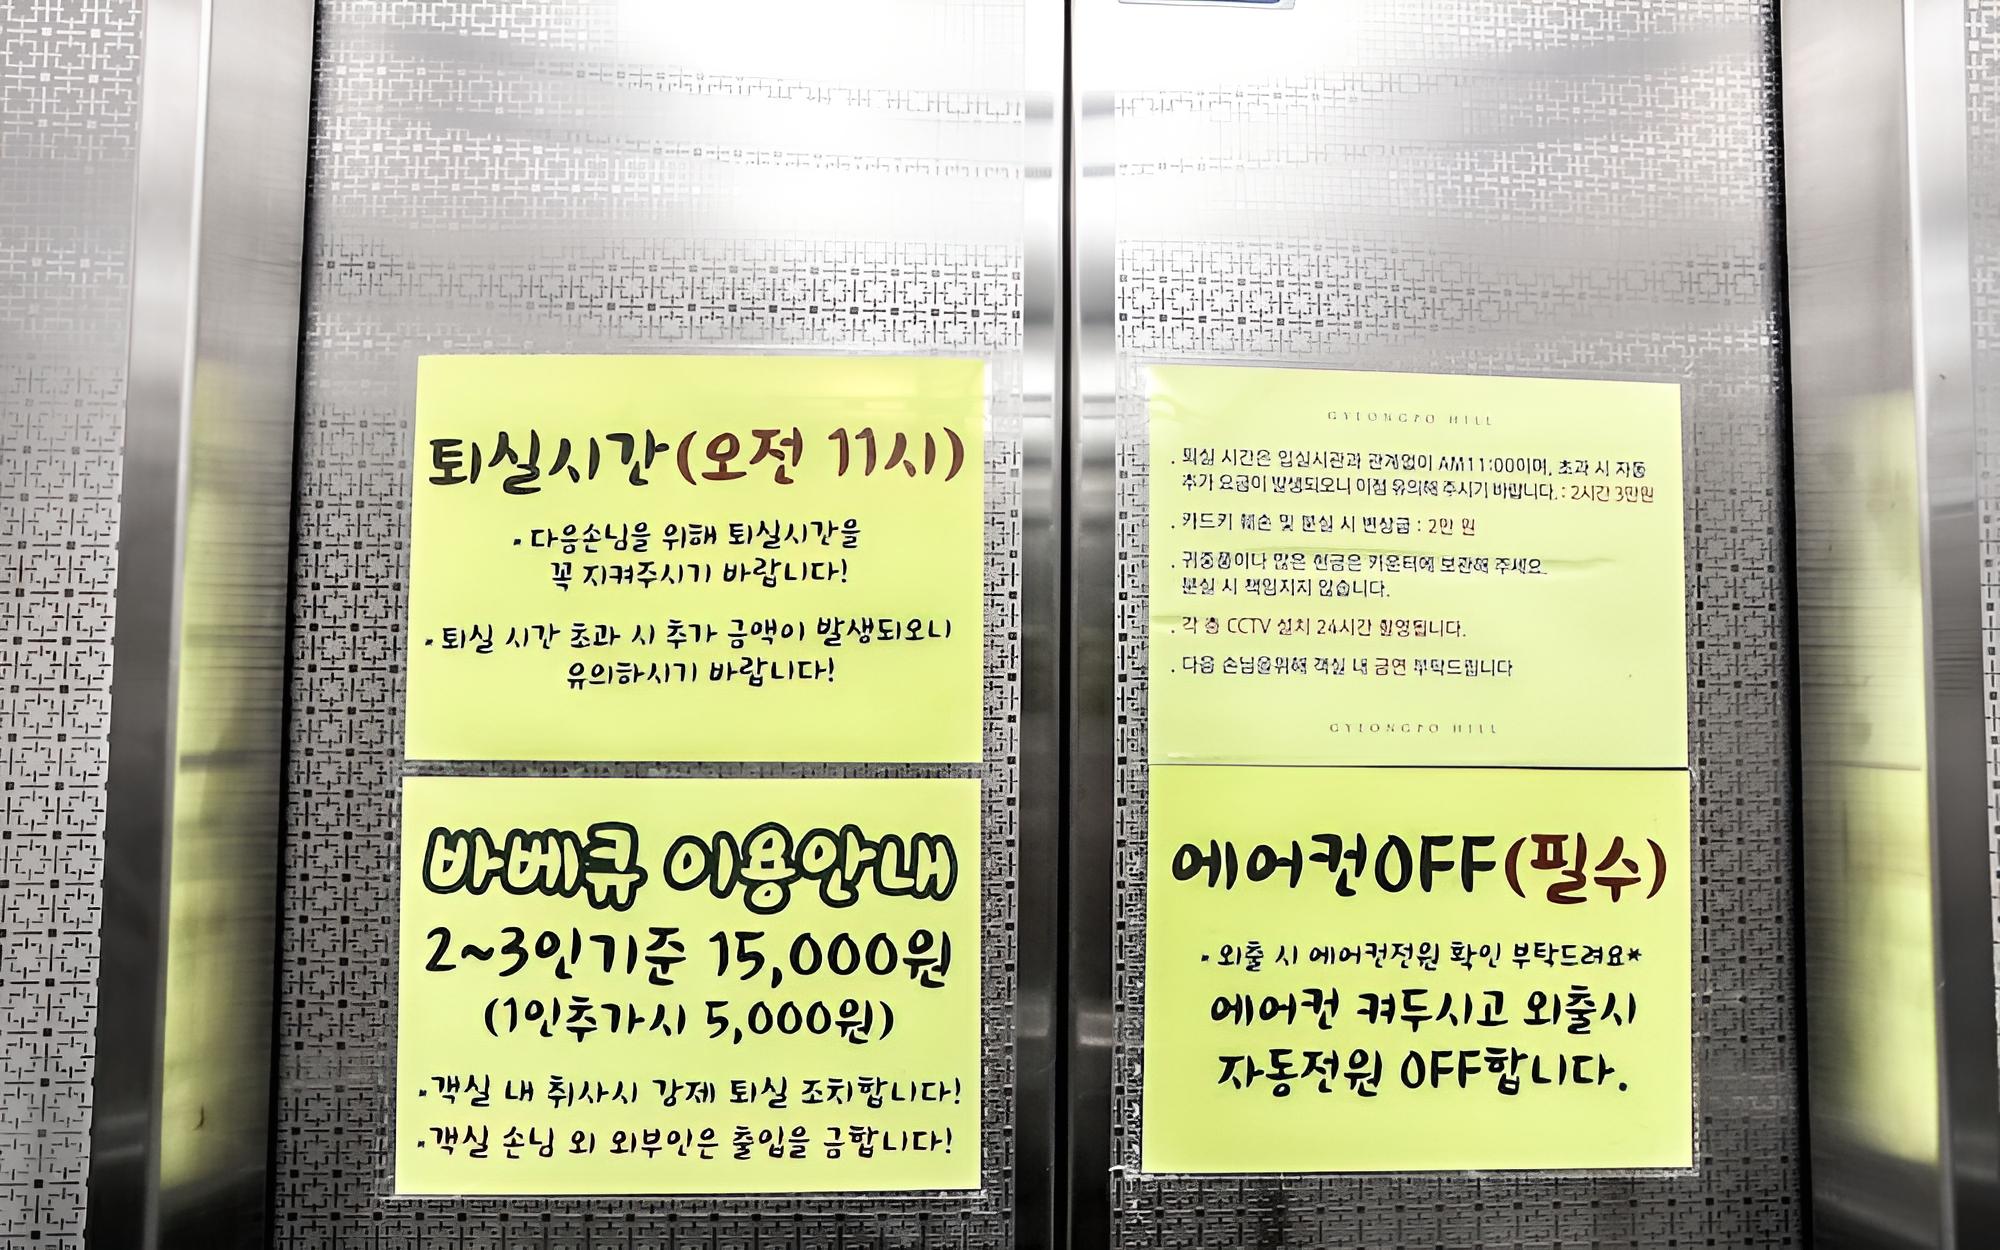 퇴실시간(오전 11시)
• 다음손님을 위해 퇴실시간을
꼭 지켜주시기 바랍니다!
• 퇴실 시간 초과 시 추가 금액이 발생되오니
유의하시기 바랍니다!
바베큐 이용안내
2~3인기준 15,000원
(1인추가시 5,000원)
• 객실 내 취사시 강제 퇴실 조치합니다!
• 객실 손님 외 외부인은 출입을 금합니다!
GYEONGPO HILL
. 퇴실 시간은 입실시관과 관계없이 AM11:00이며, 초과 시 자동
추가 요금이 발생되오니 이점 유의해 주시기 바랍니다. : 2시간 3만원
. 카드키 훼손 및 분실 시 변상금 : 2만 원
. 귀중품이나 많은 현금은 카운터에 보관해 주세요.
분실 시 책임지지 않습니다.
. 각 층 CCTV 설치 24시간 촬영됩니다.
. 다음 손님을위해 객실 내 금연 부탁드립니다
GYEONGPO HILL
에어컨OFF(필수)
• 외출 시 에어컨전원 확인 부탁드려요*
에어컨 켜두시고 외출시
자동전원 OFF합니다.